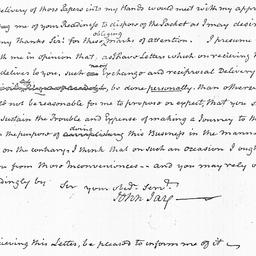 delivery of those Papers into my Hands would meet with my appr
ing me of your Readiness to dispose of the Packet as I may desir
my Thanks Sir! for these obliging marks of attention. I presume
with me in opinion that, as those Letters which on recieving th
deliver to you, such an Exchange and reciprocal Delivery
be done personally, than otherw
ld not be reasonable for me to propose or expect, that you s
sustain the Trouble and Expense of making a Journey to th
the purpose of doing this Business in the manner
on the contrary, I think that on such an occasion I ought
you from those Inconveniences -- and you may rely o
dingly by Sir your obt. Servt.
John Jay
recieving this Letter, be pleased to inform me of it